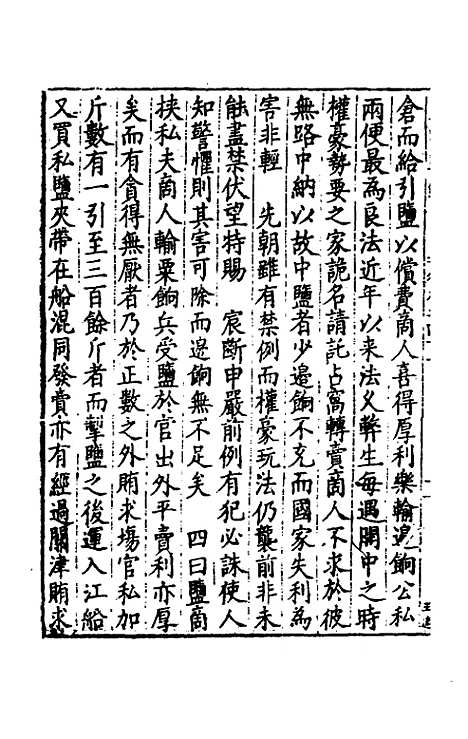 倉而給引鹽以償費商人喜得厚利樂輸邊餉公私
兩便最為良法近年以来法久弊生每遇開中之時
權豪勢要之家詭名請託占窩轉賣商人不求於彼
無路中納以故中鹽者少邊餉不充而國家失利為
害非輕　先朝雖有禁例而權豪玩法仍襲前非未
能盡禁伏望特賜　宸斷申嚴前例有犯必誅使人
知警懼則其害可除而邊餉無不足矣　四曰鹽商
挾私夫商人輸粟餉兵受鹽於官出外平賣利亦厚
矣而有貪得無厭者乃於正數之外賄求場官私加
斤數有一引至三百餘斤者而掣鹽之後運入江船
又買私鹽夾帶在船混同發賣亦有經過關津賄求